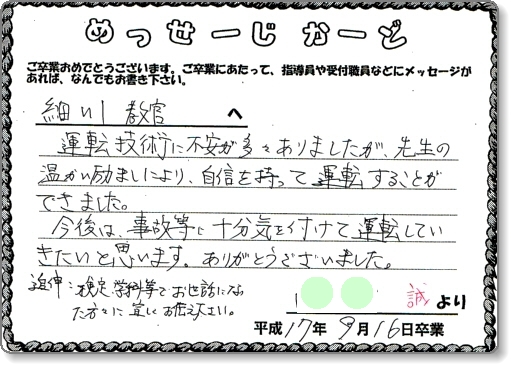 めっせーじかーど
ご卒業おめでとうございます。ご卒業にあたって、指導員や受付職員などにメッセージが
あれば、なんでもお書き下さい。
細川教官 へ
運転技術に不安が多々ありましたが、先生の
温かい励ましにより、自信を持って運転することが
できました。
今後は、事故等に十分気を付けて運転してい
きたいと思います。ありがとうございました。
追伸:検定、学科等でお世話になっ
た方々に宜しくお伝え下さい。
誠 より
平成17年 9月16日卒業